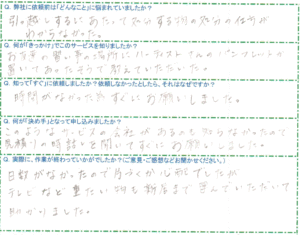 Q. 弊社に依頼前は「どんなこと」に悩まれていましたか?
引っ越しするにあたって処分する物の処分の仕方が
わからなかった。
Q. 何が「きっかけ」でこのサービスを知りましたか?
お子さんの習い事の場所にハーベストさんのパンフレットが
置いてあったと教えていただいた。
Q. 知って「すぐ」に依頼しましたか?依頼しなかったとしたら、それはなぜですか?
時間がなかった為すぐにお願いしました。
Q. 何が「決め手」となって申し込みましたか?
このようなサービスの会社があるのも知らなかったので
見積りの時話しを聞いてすぐにお願いしました。
Q. 実際に、作業が終わっていかがでしたか?(ご意見・ご感想などお聞かせください。)
日数がなかったので片づくか心配でしたが
テレビなど重たい物も新居まで運んでいただいて
助かりました。